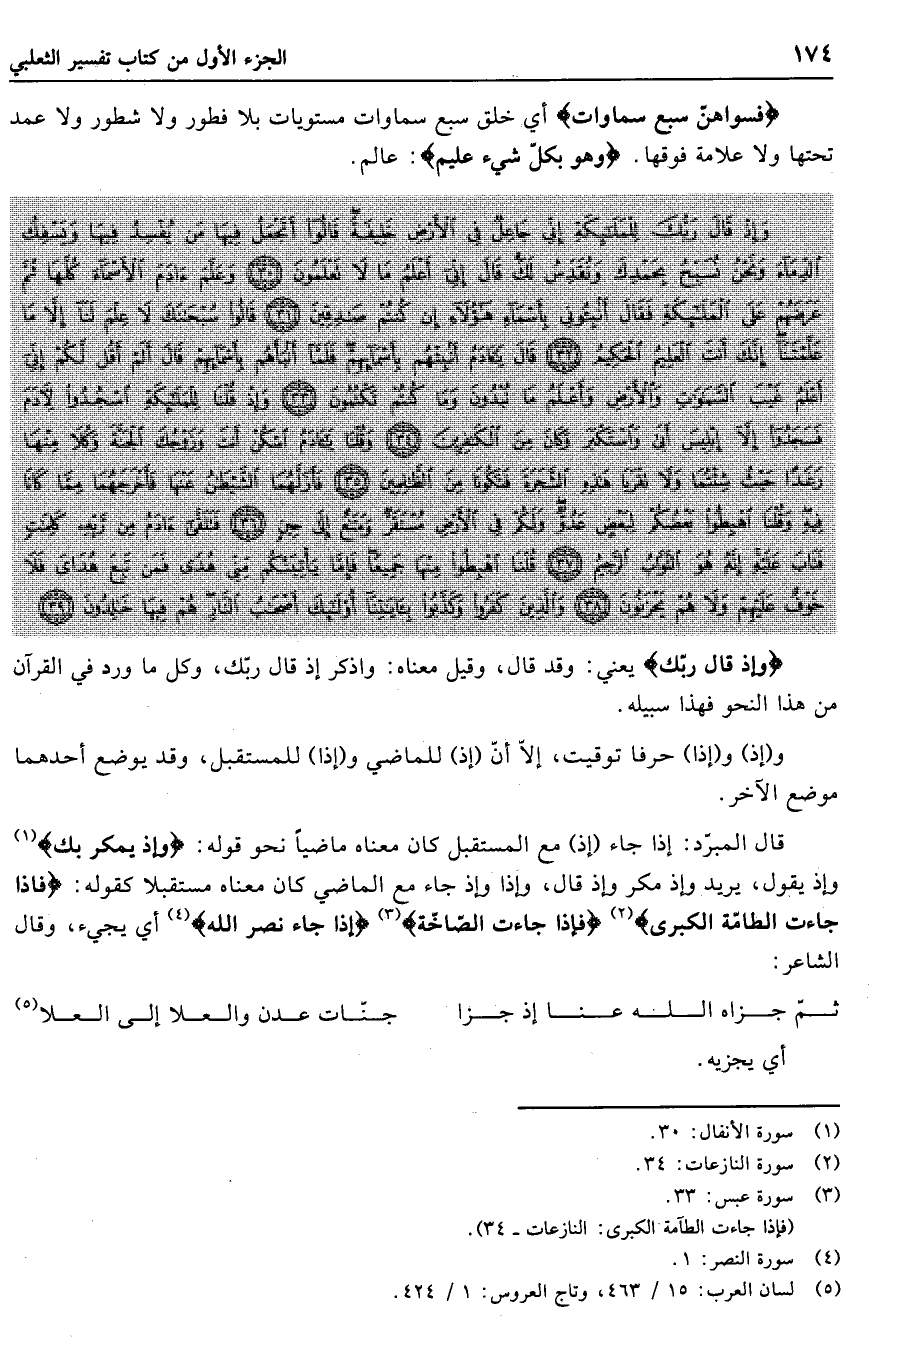 ١٧٤ الجزء الأول من كتاب تفسير الثعلبي
﴿فسواهنّ سبع سماوات﴾ أي خلق سبع سماوات مستويات بلا فطور ولا شطور ولا عمد
تحتها ولا علامة فوقها. ﴿وهو بكلّ شيء عليم﴾: عالم.
وَإِذْ قَالَ رَبُّكَ لِلْمَلَٰٓئِكَةِ إِنِّى جَاعِلٌ فِى ٱلْأَرْضِ خَلِيفَةً قَالُوٓا۟ أَتَجْعَلُ فِيهَا مَن يُفْسِدُ فِيهَا وَيَسْفِكُ
ٱلدِّمَآءَ وَنَحْنُ نُسَبِّحُ بِحَمْدِكَ وَنُقَدِّسُ لَكَ قَالَ إِنِّىٓ أَعْلَمُ مَا لَا تَعْلَمُونَ ٣٠ وَعَلَّمَ ءَادَمَ ٱلْأَسْمَآءَ كُلَّهَا ثُمَّ
عَرَضَهُمْ عَلَى ٱلْمَلَٰٓئِكَةِ فَقَالَ أَنۢبِـُٔونِى بِأَسْمَآءِ هَٰٓؤُلَآءِ إِن كُنتُمْ صَٰدِقِينَ ٣١ قَالُوا۟ سُبْحَٰنَكَ لَا عِلْمَ لَنَآ إِلَّا مَا
عَلَّمْتَنَآ إِنَّكَ أَنتَ ٱلْعَلِيمُ ٱلْحَكِيمُ ٣٢ قَالَ يَٰٓـَٔادَمُ أَنۢبِئْهُم بِأَسْمَآئِهِمْ فَلَمَّآ أَنۢبَأَهُم بِأَسْمَآئِهِمْ قَالَ أَلَمْ أَقُل لَّكُمْ إِنِّىٓ
أَعْلَمُ غَيْبَ ٱلسَّمَٰوَٰتِ وَٱلْأَرْضِ وَأَعْلَمُ مَا تُبْدُونَ وَمَا كُنتُمْ تَكْتُمُونَ ٣٣ وَإِذْ قُلْنَا لِلْمَلَٰٓئِكَةِ ٱسْجُدُوا۟ لِـَٔادَمَ
فَسَجَدُوٓا۟ إِلَّآ إِبْلِيسَ أَبَىٰ وَٱسْتَكْبَرَ وَكَانَ مِنَ ٱلْكَٰفِرِينَ ٣٤ وَقُلْنَا يَٰٓـَٔادَمُ ٱسْكُنْ أَنتَ وَزَوْجُكَ ٱلْجَنَّةَ وَكُلَا مِنْهَا
رَغَدًا حَيْثُ شِئْتُمَا وَلَا تَقْرَبَا هَٰذِهِ ٱلشَّجَرَةَ فَتَكُونَا مِنَ ٱلظَّٰلِمِينَ ٣٥ فَأَزَلَّهُمَا ٱلشَّيْطَٰنُ عَنْهَا فَأَخْرَجَهُمَا مِمَّا كَانَا
فِيهِ وَقُلْنَا ٱهْبِطُوا۟ بَعْضُكُمْ لِبَعْضٍ عَدُوٌّ وَلَكُمْ فِى ٱلْأَرْضِ مُسْتَقَرٌّ وَمَتَٰعٌ إِلَىٰ حِينٍ ٣٦ فَتَلَقَّىٰٓ ءَادَمُ مِن رَّبِّهِۦ كَلِمَٰتٍ
فَتَابَ عَلَيْهِ إِنَّهُۥ هُوَ ٱلتَّوَّابُ ٱلرَّحِيمُ ٣٧ قُلْنَا ٱهْبِطُوا۟ مِنْهَا جَمِيعًا فَإِمَّا يَأْتِيَنَّكُم مِّنِّى هُدًى فَمَن تَبِعَ هُدَاىَ فَلَا
خَوْفٌ عَلَيْهِمْ وَلَا هُمْ يَحْزَنُونَ ٣٨ وَٱلَّذِينَ كَفَرُوا۟ وَكَذَّبُوا۟ بِـَٔايَٰتِنَآ أُو۟لَٰٓئِكَ أَصْحَٰبُ ٱلنَّارِ هُمْ فِيهَا خَٰلِدُونَ ٣٩
﴿وإذ قال ربّك﴾ يعني: وقد قال، وقيل معناه: واذكر إذ قال ربّك، وكل ما ورد في القرآن
من هذا النحو فهذا سبيله.
و(إذ) و(إذا) حرفا توقيت، إلاّ أنّ (إذ) للماضي و(إذا) للمستقبل، وقد يوضع أحدهما
موضع الآخر.
قال المبرّد: إذا جاء (إذ) مع المستقبل كان معناه ماضياً نحو قوله: ﴿وإذ يمكر بك﴾(١)
وإذ يقول، يريد وإذ مكر وإذ قال، وإذا وإذ جاء مع الماضي كان معناه مستقبلا كقوله: ﴿فاذا
جاءت الطامّة الكبرى﴾(٢) ﴿فإذا جاءت الصّاخّة﴾(٣) ﴿إذا جاء نصر الله﴾(٤) أي يجيء، وقال
الشاعر:
ثـــمّ جـــزاه الـــلـــه عـــنـــا إذ جـــزا جـنّـات عـدن والـعـلا إلـى الـعـلا(٥)
أي يجزيه.
(١) سورة الأنفال: ٣٠.
(٢) سورة النازعات: ٣٤.
(٣) سورة عبس: ٣٣.
(فإذا جاءت الطآمة الكبرى: النازعات ـ ٣٤).
(٤) سورة النصر: ١.
(٥) لسان العرب: ١٥ / ٤٦٣، وتاج العروس: ١ / ٤٢٤.